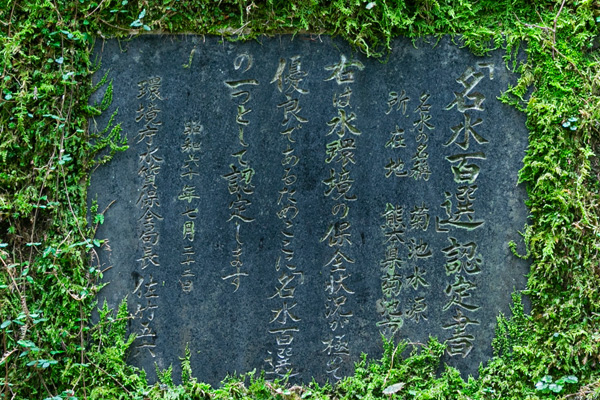 「名水百選」認定書
名水の名称 菊池水源
所在地 熊本県菊池
右は水環境の保全状況が極て
優良であるためここに「名水百選
の一つとして認定します
昭和六十年七月二十二日
環境庁水質保全局長 佐竹五六